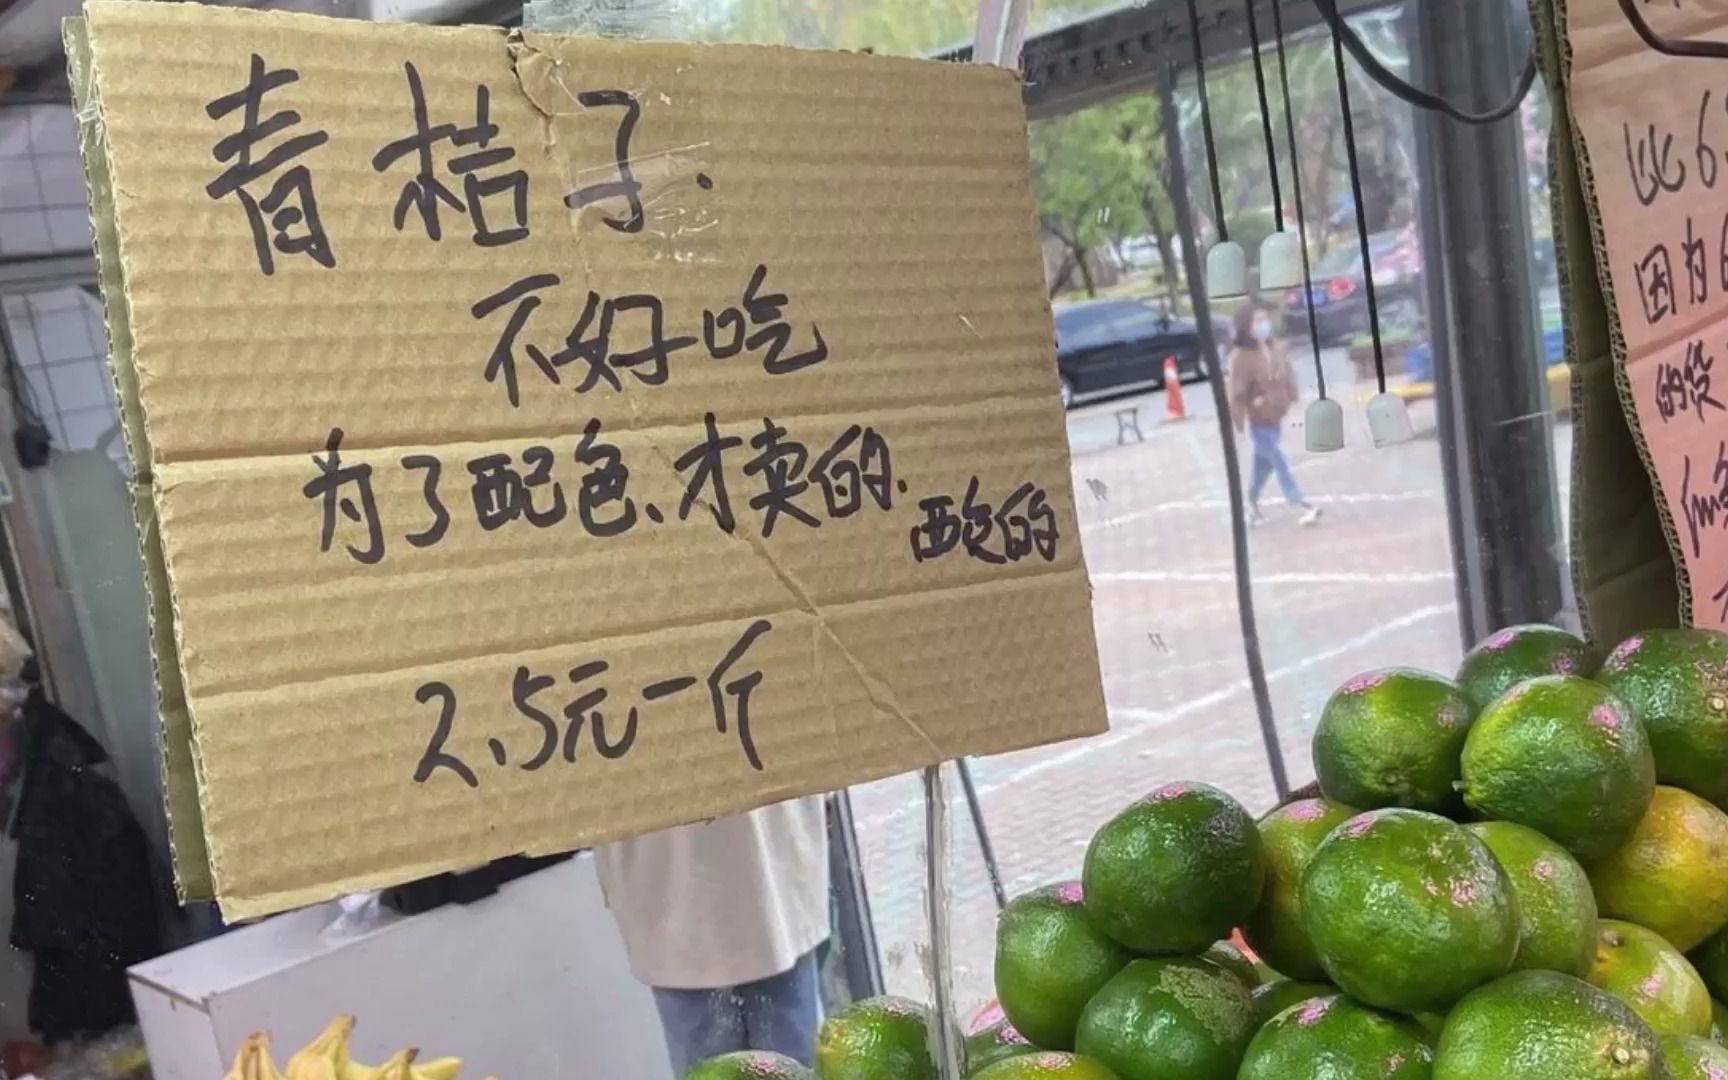 青桔子.
不好吃
为了配色、才卖的.
酸的
2.5元一斤
比6
因为
的货